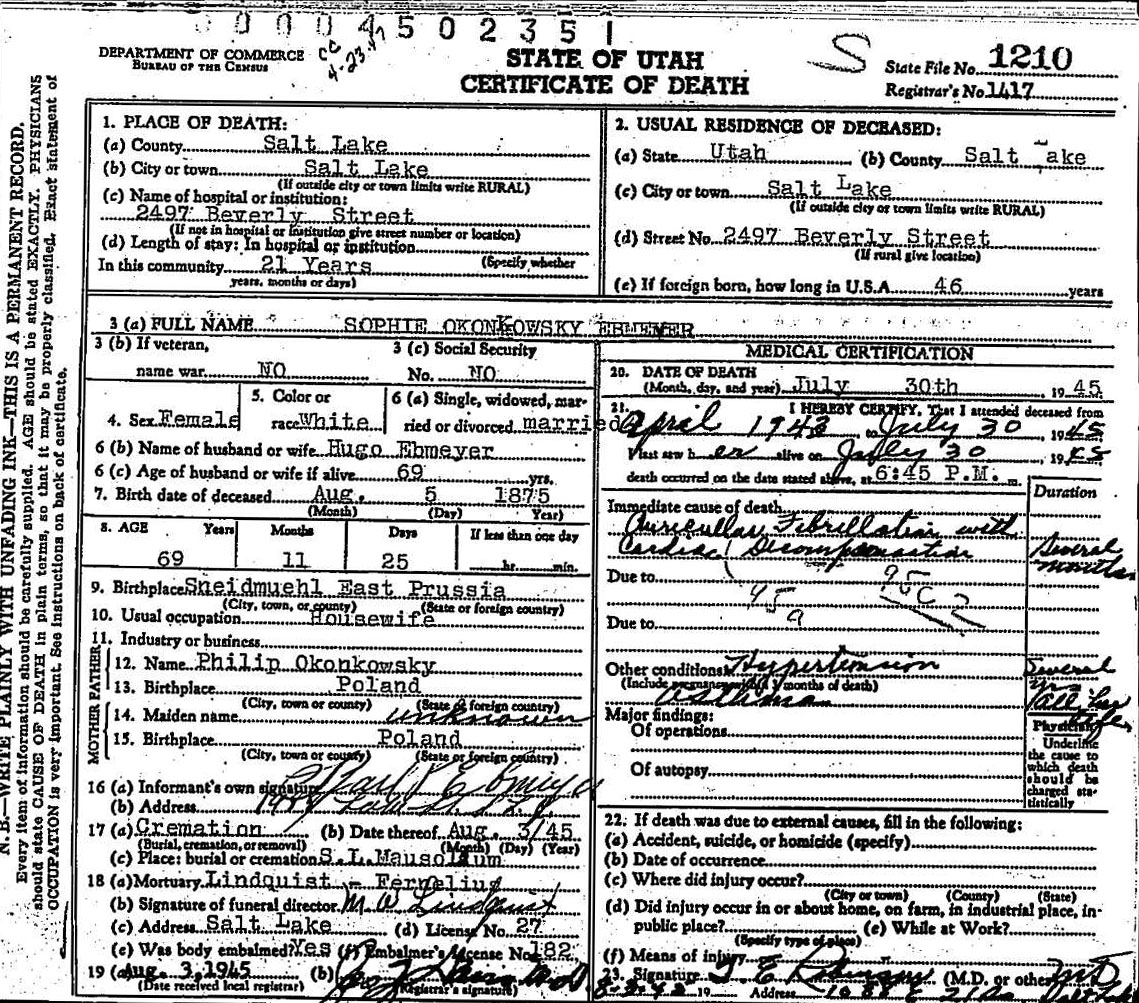 0000 4502351
DEPARTMENT OF COMMERCE
BUREAU OF THE CENSUS
cc
4-23-47
STATE OF UTAH
CERTIFICATE OF DEATH
S
State File No. 1210
Registrar's No. 1417
N. B.—WRITE PLAINLY WITH UNFADING INK—THIS IS A PERMANENT RECORD.
Every item of information should be carefully supplied. AGE should be stated EXACTLY. PHYSICIANS
should state CAUSE OF DEATH in plain terms, so that it may be properly classified. Exact statement of
OCCUPATION is very important. See instructions on back of certificate.
1. PLACE OF DEATH:
(a) County Salt Lake
(b) City or town Salt Lake
(If outside city or town limits write RURAL)
(c) Name of hospital or institution:
2497 Beverly Street
(If not in hospital or institution give street number or location)
(d) Length of stay: In hospital or institution
In this community 21 Years (Specify whether
years, months or days)
2. USUAL RESIDENCE OF DECEASED:
(a) State Utah (b) County Salt Lake
(c) City or town Salt Lake
(If outside city or town limits write RURAL)
(d) Street No. 2497 Beverly Street
(If rural give location)
(e) If foreign born, how long in U.S.A. 46 years
3 (a) FULL NAME SOPHIE OKONKOWSKY EBMEYER
3 (b) If veteran,
name war NO
3 (c) Social Security
No. NO
4. Sex Female
5. Color or
race White
6 (a) Single, widowed, mar-
ried or divorced married
6 (b) Name of husband or wife Hugo Ebmeyer
6 (c) Age of husband or wife if alive 69 yrs.
7. Birth date of deceased Aug. 5 1875
(Month) (Day) Year)
8. AGE Years Months Days If less than one day
69 11 25 hr. min.
9. Birthplace Sneidmuehl East Prussia
(City, town, or county) (State or foreign country)
10. Usual occupation Housewife
11. Industry or business
FATHER
12. Name Philip Okonkowsky
13. Birthplace Poland
(City, town or county) (State or foreign country)
MOTHER
14. Maiden name unknown
15. Birthplace Poland
(City, town or county) (State or foreign country)
16 (a) Informant's own signature Ebmeyer
(b) Address
17 (a) Cremation (b) Date thereof Aug. 3/45
(Burial, cremation, or removal) (Month) (Day) (Year)
(c) Place: burial or cremation S.L. Mausoleum
18 (a) Mortuary Lindquist - Fernelius
(b) Signature of funeral director M. W. Lindquist
(c) Address Salt Lake (d) License No. 27
(e) Was body embalmed? Yes (f) Embalmer's License No. 182
19 (a) Aug. 3, 1945 (b)
(Date received local registrar) Registrar's signature)
MEDICAL CERTIFICATION
20. DATE OF DEATH
(Month, day, and year) July 30th 1945
21. I HEREBY CERTIFY, That I attended deceased from
April 1943 to July 30 1945
I last saw her alive on July 30 1945
death occurred on the date stated above, at 6:45 P.M. m.
Duration
Immediate cause of death
Auricular Fibrillation with
Cardiac Decompensation
Several
months
Due to
95c 2
95a
Due to
Other conditions Hypertension
(Include pregnancy within 3 months of death)
Asthma
Several
Major findings:
Of operations
Of autopsy
Physician
Underline
the cause to
which death
should be
charged sta-
tistically
22. If death was due to external causes, fill in the following:
(a) Accident, suicide, or homicide (specify)
(b) Date of occurrence
(c) Where did injury occur?
(City or town) (County) (State)
(d) Did injury occur in or about home, on farm, in industrial place, in
public place? (e) While at Work?
(Specify type of place)
(f) Means of injury
23. Signature (M.D. or other) MD
19 Address